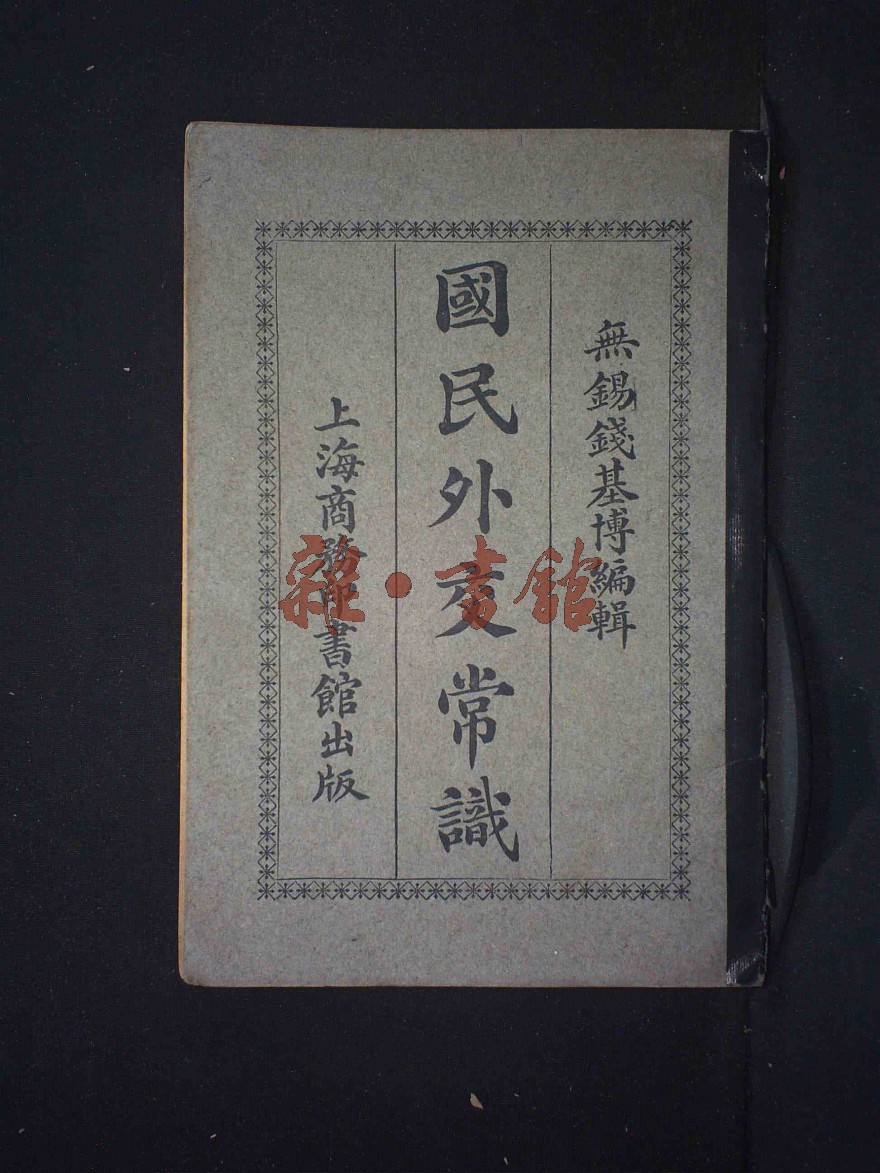 無錫錢基博編輯
國民外交常識
上海商務印書館出版
雜·書館